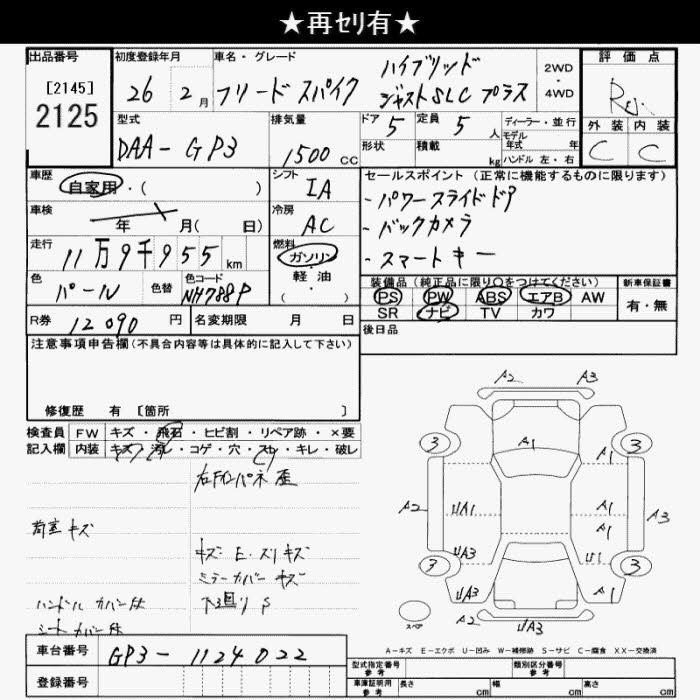 ★再セリ有★
出品番号
[2145]
2125
初度登録年月
26 2月
車名・グレード
フリード スパイク
ハイブリッド
ジャストSLC プラス
2WD
・
4WD
評価点
外装 内装
C C
型式
DAA-GP3
排気量
1500 CC
ドア 5
形状
定員 5 人
積載 kg
ディーラー・並行
モデル
年式 年
ハンドル 左・右
車歴
自家用・( )
シフト
IA
車検
年 月( 日)
冷房
AC
走行
11万9千955 km
燃料
ガソリン
・
軽・油
・
( )
色
パール
色替
色コード
NH788P
セールスポイント (正常に機能するものに限ります)
-パワースライドドア
-バックカメラ
-スマートキー
装備品 (純正品に限り○をつけてください)
PS PW ABS エアB AW
SR ナビ TV カワ
新車保証書
有・無
R券 12090 円
名変期限 月 日
後日品
注意事項申告欄(不具合内容等は具体的に記入して下さい)
修復歴 有 [箇所 ]
検査員
記入欄
FW キズ・飛石・ヒビ割・リペア跡・×要
内装 キズ・汚レ・コゲ・穴・スレ・キレ・破レ
荷室 キズ
キズ E・スリキズ
ミラーカバー キズ
ハンドル カバー付
シート カバー付
A2 A3
3 3
A1 A3
A2 UA1 A1 A3
A1
UA3 U1
3 3
UA3 A1
UA3
スペア
A-キズ E-エクボ U-凹み W-補修跡 S-サビ C-腐食 XX-交換済
車台番号
GP3-1124022
登録番号
型式指定番号
参考
類別区分番号
参考
車庫証明用
参考
長さ cm
幅 cm
高さ cm